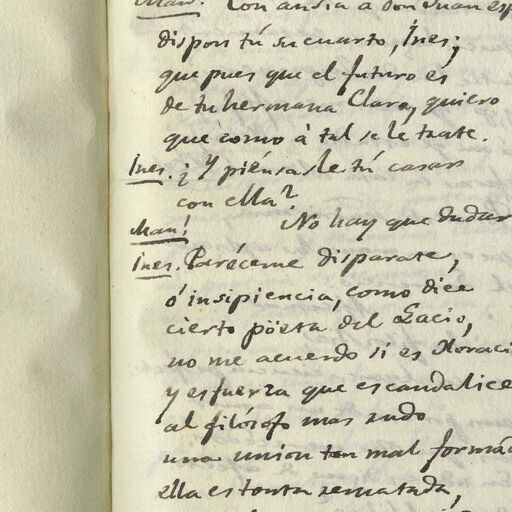 Man! Con ansia à don Juan esp
dispon tú su cuarto, Ínes;
que pues que el futuro es
de tu hermana Clara, quiero
que como à tal se le trate.
Ines. ¿Y piénsasle tú casar
con ella?
Man! No hay que dudar
Ines. Paréceme disparate,
ó insipiencia, como dice
cierto pöeta del Lacio,
no me acuerdo si es Horaci
y es fuerza que escandalice
al filósofo mas rudo
una union tan mal formad
ella es tonta rematada,